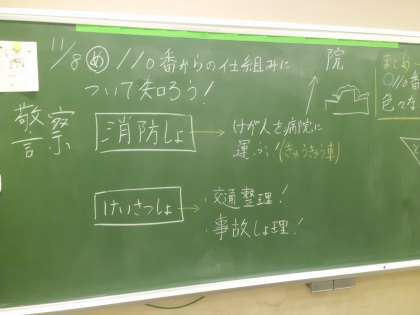 11/8 め 110番からの仕組みに
ついて知ろう!
警察
消防しょ → けが人を病院に
運ぶ!(きゅうきゅう車)
院
けいさつしょ → ・交通整理!
・事故しょ理!
まとめ
○110番
色々な